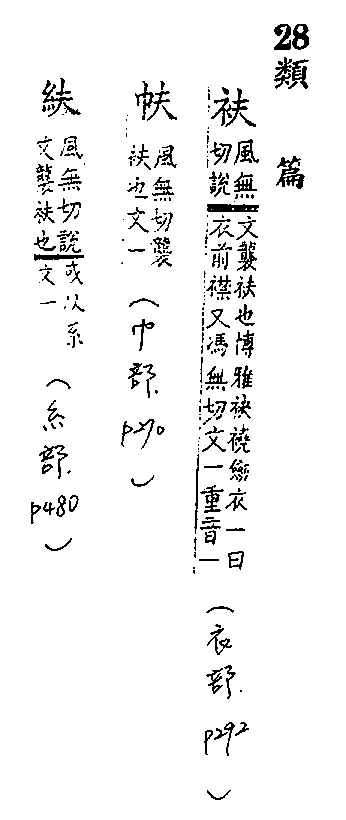 28
類篇
衭風無切說文襲衭也博雅袂襓衣一曰衣前襟又馮無切文一重音一(衣部.p292)
風無切襲衭也文一(巾部.p270)
風無切說文襲衭也或从糸文一(糸部.p480)